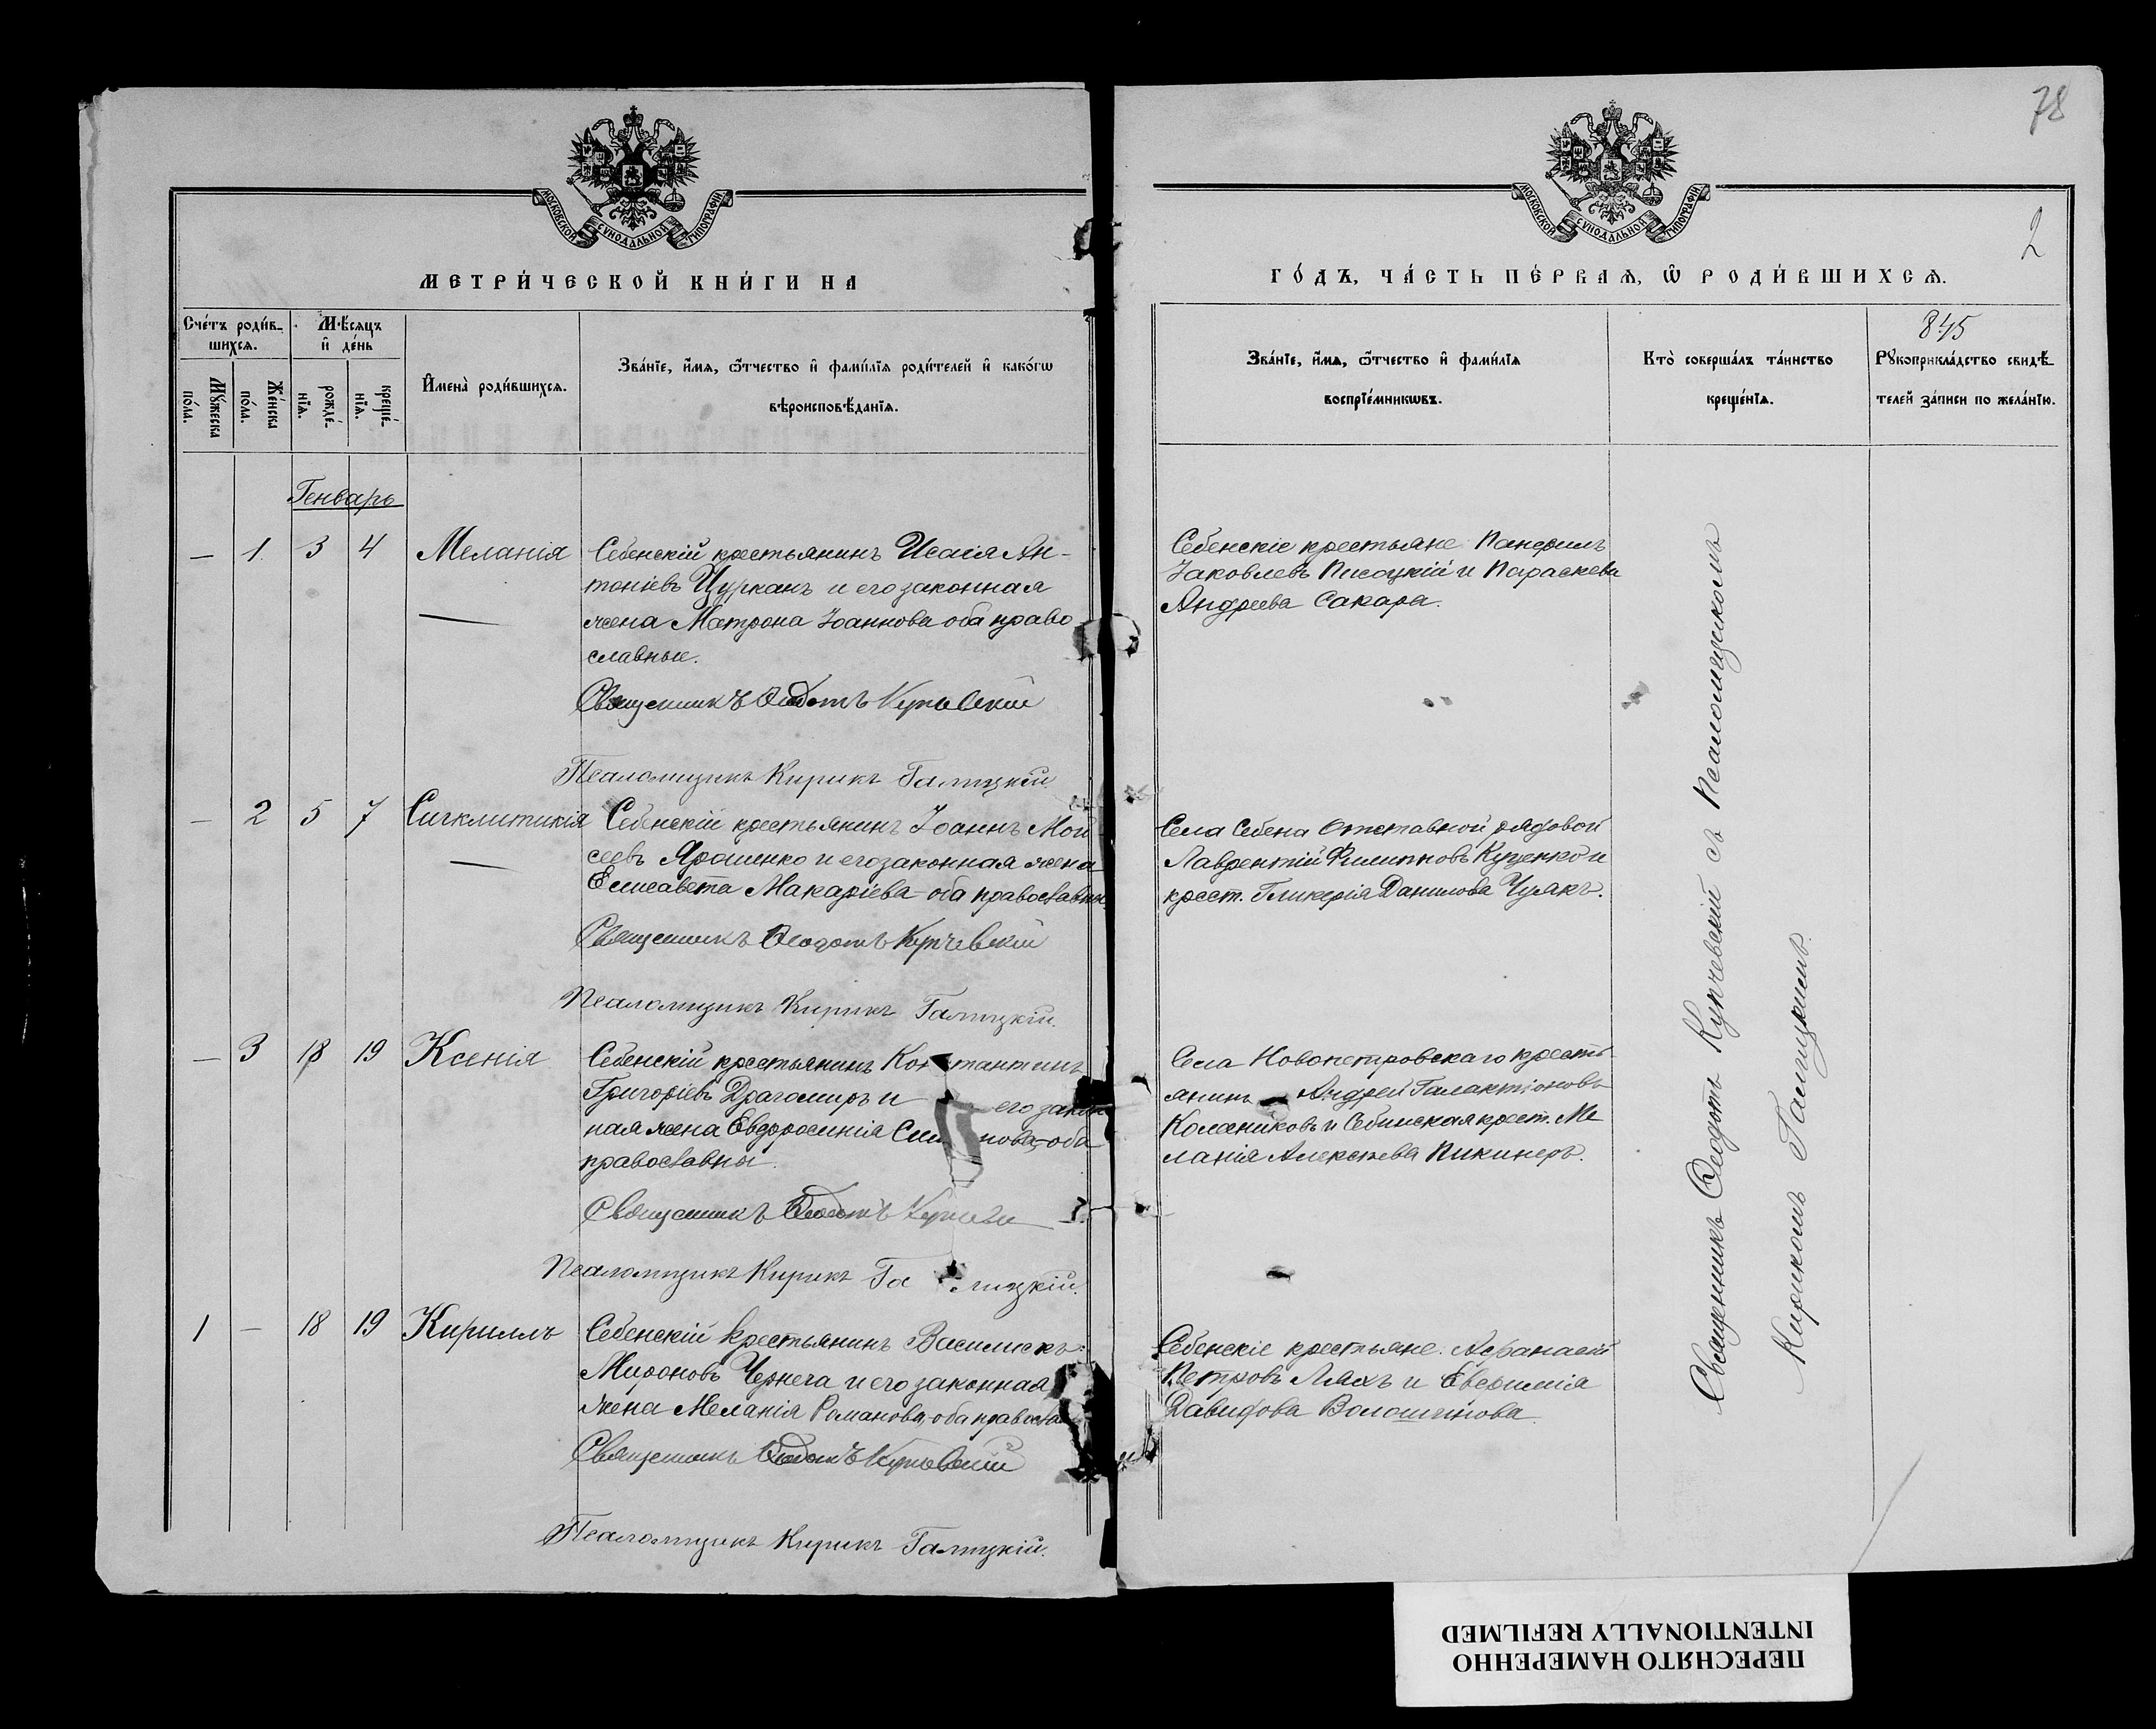 78
МОСКОВСКОЙ СѴНОДАЛЬНОЙ ТИПОГРАФІИ
МОСКОВСКОЙ СѴНОДАЛЬНОЙ ТИПОГРАФІИ
2
МЕТРИ́ЧЕСКОЙ КНИ́ГИ НА
ГО́ДЪ, ЧА́СТЬ ПЕ́РВАѦ, Ѡ҆ РОДИ́ВШИХСѦ.
845
Сче́тъ роди́в-
шихсѧ.
Мꙋ́жеска
по́ла.
Же́нска
по́ла.
Мѣ́сѧцъ
и҆ де́нь
рожде́-
нїѧ.
креще́-
нїѧ.
И҆мена̀ роди́вшихсѧ.
Зва́нїе, и҆́мѧ, ѻ҆́тчество и҆ фами́лїѧ роди́телей и҆ како́гѡ
вѣроисповѣ́данїѧ.
Зва́нїе, и҆́мѧ, ѻ҆́тчество и҆ фами́лїѧ
воспрїе́мникѡвъ.
Кто̀ соверша́лъ та́инство
креще́нїѧ.
Рꙋкоприкла́дство свидѣ́-
телей за́писи по жела́нїю.
Генварь
— 1. 3 4 Меланія
Себенскій крестьянинъ Исаія Ан-
тоніевъ Цурканъ и его законная
жена Матрона Іоаннова оба право
славные.
Священникъ Ѳеодотъ Купчевскій
Псаломщикъ Кирикъ Галицкій.
Себенскіе крестьяне Панфилъ
Іаковлевъ Писоцкій и Параскева
Андреева Сакара.
— 2 5 7 Сигклитикія
Себенскій крестьянинъ Іоаннъ Мои
сеевъ Ярошенко и его законная жена
Елисавета Макаріева - оба православны.
Священникъ Ѳеодотъ Купчевскій
Псаломщикъ Кирикъ Галицкій.
Села Себена Отставной рядовой
Лаврентій Филипповъ Куценко и
крест. Гликерія Данилова Чумакъ.
— 3 18 19 Ксенія
Себенскій крестьянинъ Константинъ
Григоріевъ Драгомиръ и его закон
ная жена Евфросинія нова - оба
православны.
Священникъ Ѳеодотъ
Псаломщикъ Кирикъ Галицкій.
Села Новопетровскаго кресть
янинъ — Андрей Галактіоновъ
Колесниковъ и Себинская крест. Ме
ланія Алексѣева Пикинеръ.
1 — 18 19 Кириллъ
Себенскій крестьянинъ Василискъ
Мироновъ Чернега и его законная
жена Меланія Романова, оба правосла
Священникъ Ѳеодотъ Купчевскій
Псаломщикъ Кирикъ Галицкій.
Себенскіе крестьяне: Афанасій
Петровъ Ляхъ и Евфимія
Давидова Волошинова.
Священникъ Ѳеодотъ Купчевскій съ Псаломщикомъ
Кирикомъ Галицкимъ.
ПЕРЕСНЯТО НАМЕРЕННО
INTENTIONALLY REFILMED